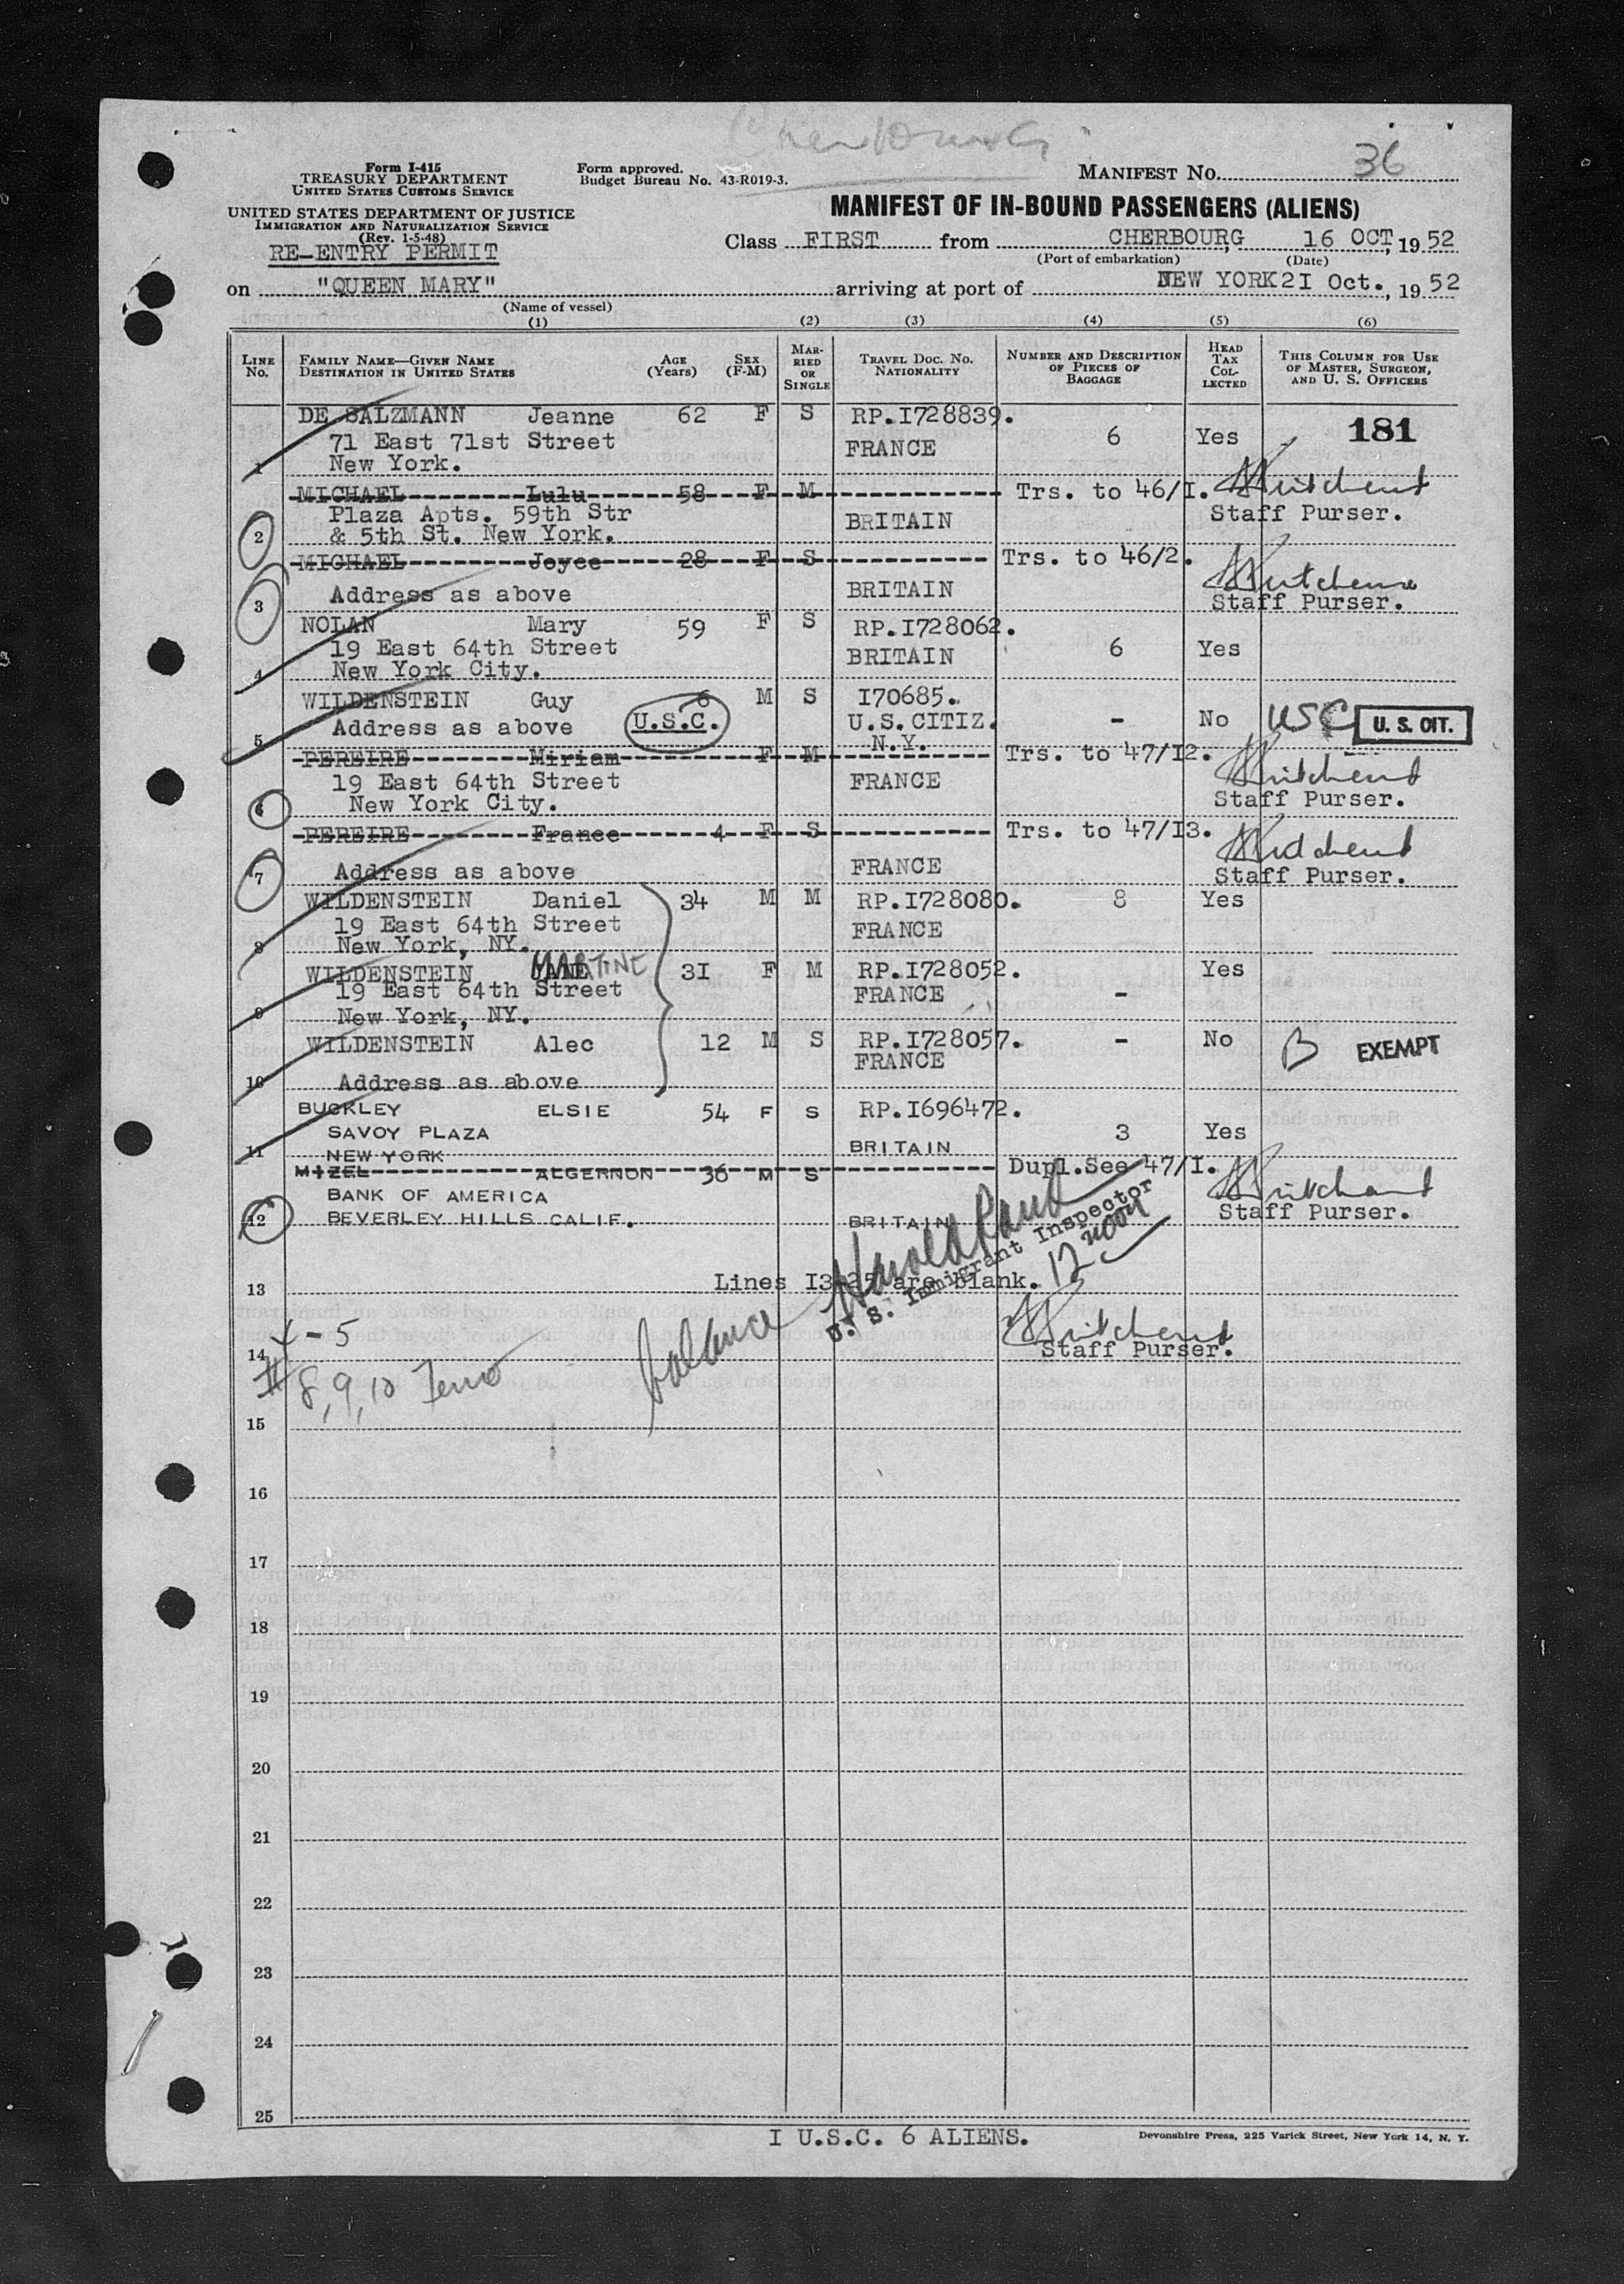 Cherbourg
Form I-415
TREASURY DEPARTMENT
UNITED STATES CUSTOMS SERVICE
Form approved.
Budget Bureau No. 43-R019-3.
MANIFEST No. 36
UNITED STATES DEPARTMENT OF JUSTICE
IMMIGRATION AND NATURALIZATION SERVICE
(Rev. 1-5-48)
RE-ENTRY PERMIT
MANIFEST OF IN-BOUND PASSENGERS (ALIENS)
Class FIRST from CHERBOURG, 16 OCT, 1952
(Port of embarkation) (Date)
on "QUEEN MARY" arriving at port of NEW YORK 2I Oct., 1952
(Name of vessel)
(1) (2) (3) (4) (5) (6)
LINE No. FAMILY NAME—GIVEN NAME DESTINATION IN UNITED STATES AGE (Years) SEX (F-M) MARRIED OR SINGLE TRAVEL DOC. NO. NATIONALITY NUMBER AND DESCRIPTION OF PIECES OF BAGGAGE HEAD TAX COLLECTED THIS COLUMN FOR USE OF MASTER, SURGEON, AND U. S. OFFICERS
DE SALZMANN Jeanne 62 F S RP.I728839. 181
71 East 71st Street FRANCE 6 Yes
1 New York.
MICHAEL Lulu 58 F M Trs. to 46/I.
Plaza Apts. 59th Str BRITAIN Staff Purser.
2 & 5th St. New York.
MICHAEL Joyce 28 F S Trs. to 46/2.
3 Address as above BRITAIN Staff Purser.
NOLAN Mary 59 F S RP.I728062.
19 East 64th Street BRITAIN 6 Yes
4 New York City.
WILDENSTEIN Guy 6 M S I70685.
5 Address as above U.S.C. U.S.CITIZ. - No USC U. S. CIT.
N.Y.
PEREIRE Miriam F M Trs. to 47/I2.
19 East 64th Street FRANCE
6 New York City. Staff Purser.
PEREIRE France 4 F S Trs. to 47/I3.
7 Address as above FRANCE Staff Purser.
WILDENSTEIN Daniel 34 M M RP.I728080. 8 Yes
19 East 64th Street FRANCE
8 New York, NY.
WILDENSTEIN MARTINE 3I F M RP.I728052. Yes
19 East 64th Street FRANCE -
9 New York, NY.
WILDENSTEIN Alec 12 M S RP.I728057. - No B EXEMPT
FRANCE
10 Address as above
BUCKLEY ELSIE 54 F S RP.I696472.
SAVOY PLAZA 3 Yes
11 NEW YORK BRITAIN
MIZEL ALGERNON 36 M S Dupl.See 47/I.
BANK OF AMERICA
12 BEVERLEY HILLS CALIF. BRITAIN Staff Purser.
U. S. Immigrant Inspector
12 noon
13 Lines I3-25 are blank.
- 5
14 Staff Purser.
8, 9, 10
15
16
17
18
19
20
21
22
23
24
25
I U.S.C. 6 ALIENS.
Devonshire Press, 225 Varick Street, New York 14, N. Y.